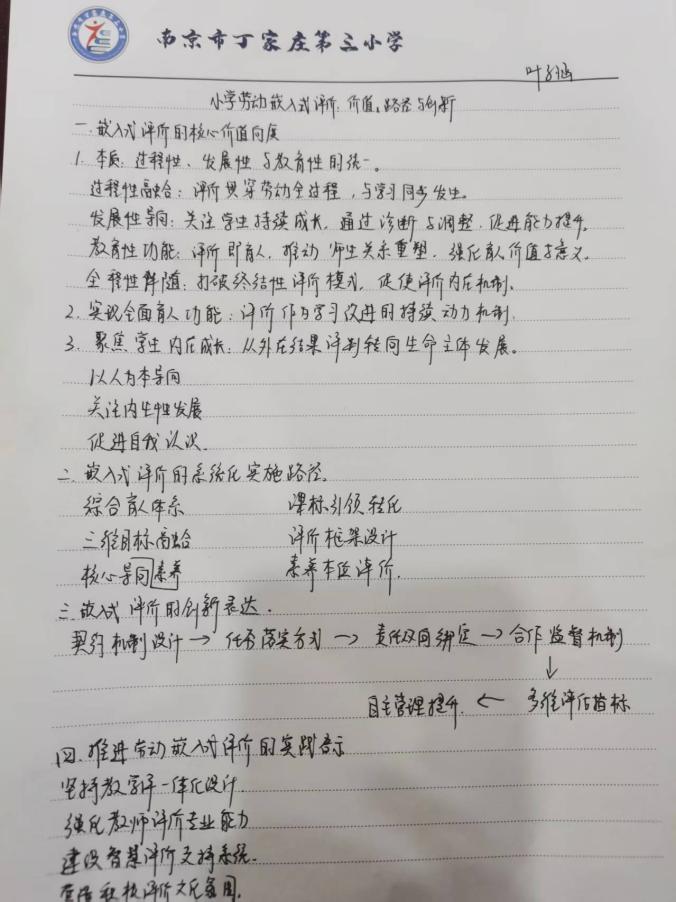 南京市丁家庄第三小学
叶子涵
小学劳动嵌入式评价：价值、路径与创新
一.嵌入式评价的核心价值向度
1. 本质：过程性、发展性与教育性的统一。
过程性融合：评价贯穿劳动全过程，与学习同步发生。
发展性导向：关注学生持续成长，通过诊断与调整，促进能力提升。
教育性功能：评价即育人，推动师生关系重塑，强化育人价值与意义。
全程性伴随：打破终结性评价模式，促使评价内在机制。
2. 实现全面育人功能：评价作为学习改进的持续动力机制.
3. 聚焦学生内在成长：从外在结果评判转向生命主体发展。
以人为本导向
关注内生性发展
促进自我认识.
二.嵌入式评价的系统化实施路径。
综合育人体系 课标引领转化
三维目标高融合 评价框架设计
核心导向素养 素养本位评价.
三.嵌入式评价的创新表达.
契约机制设计→任务落实方式→责任双向绑定→合作监督机制
↓
自主管理提升.←多维评估指标
四.推进劳动嵌入式评价的实践启示
坚持教学评一体化设计
强化教师评价专业能力
建设智慧评价支持系统.
评价文化氛围.